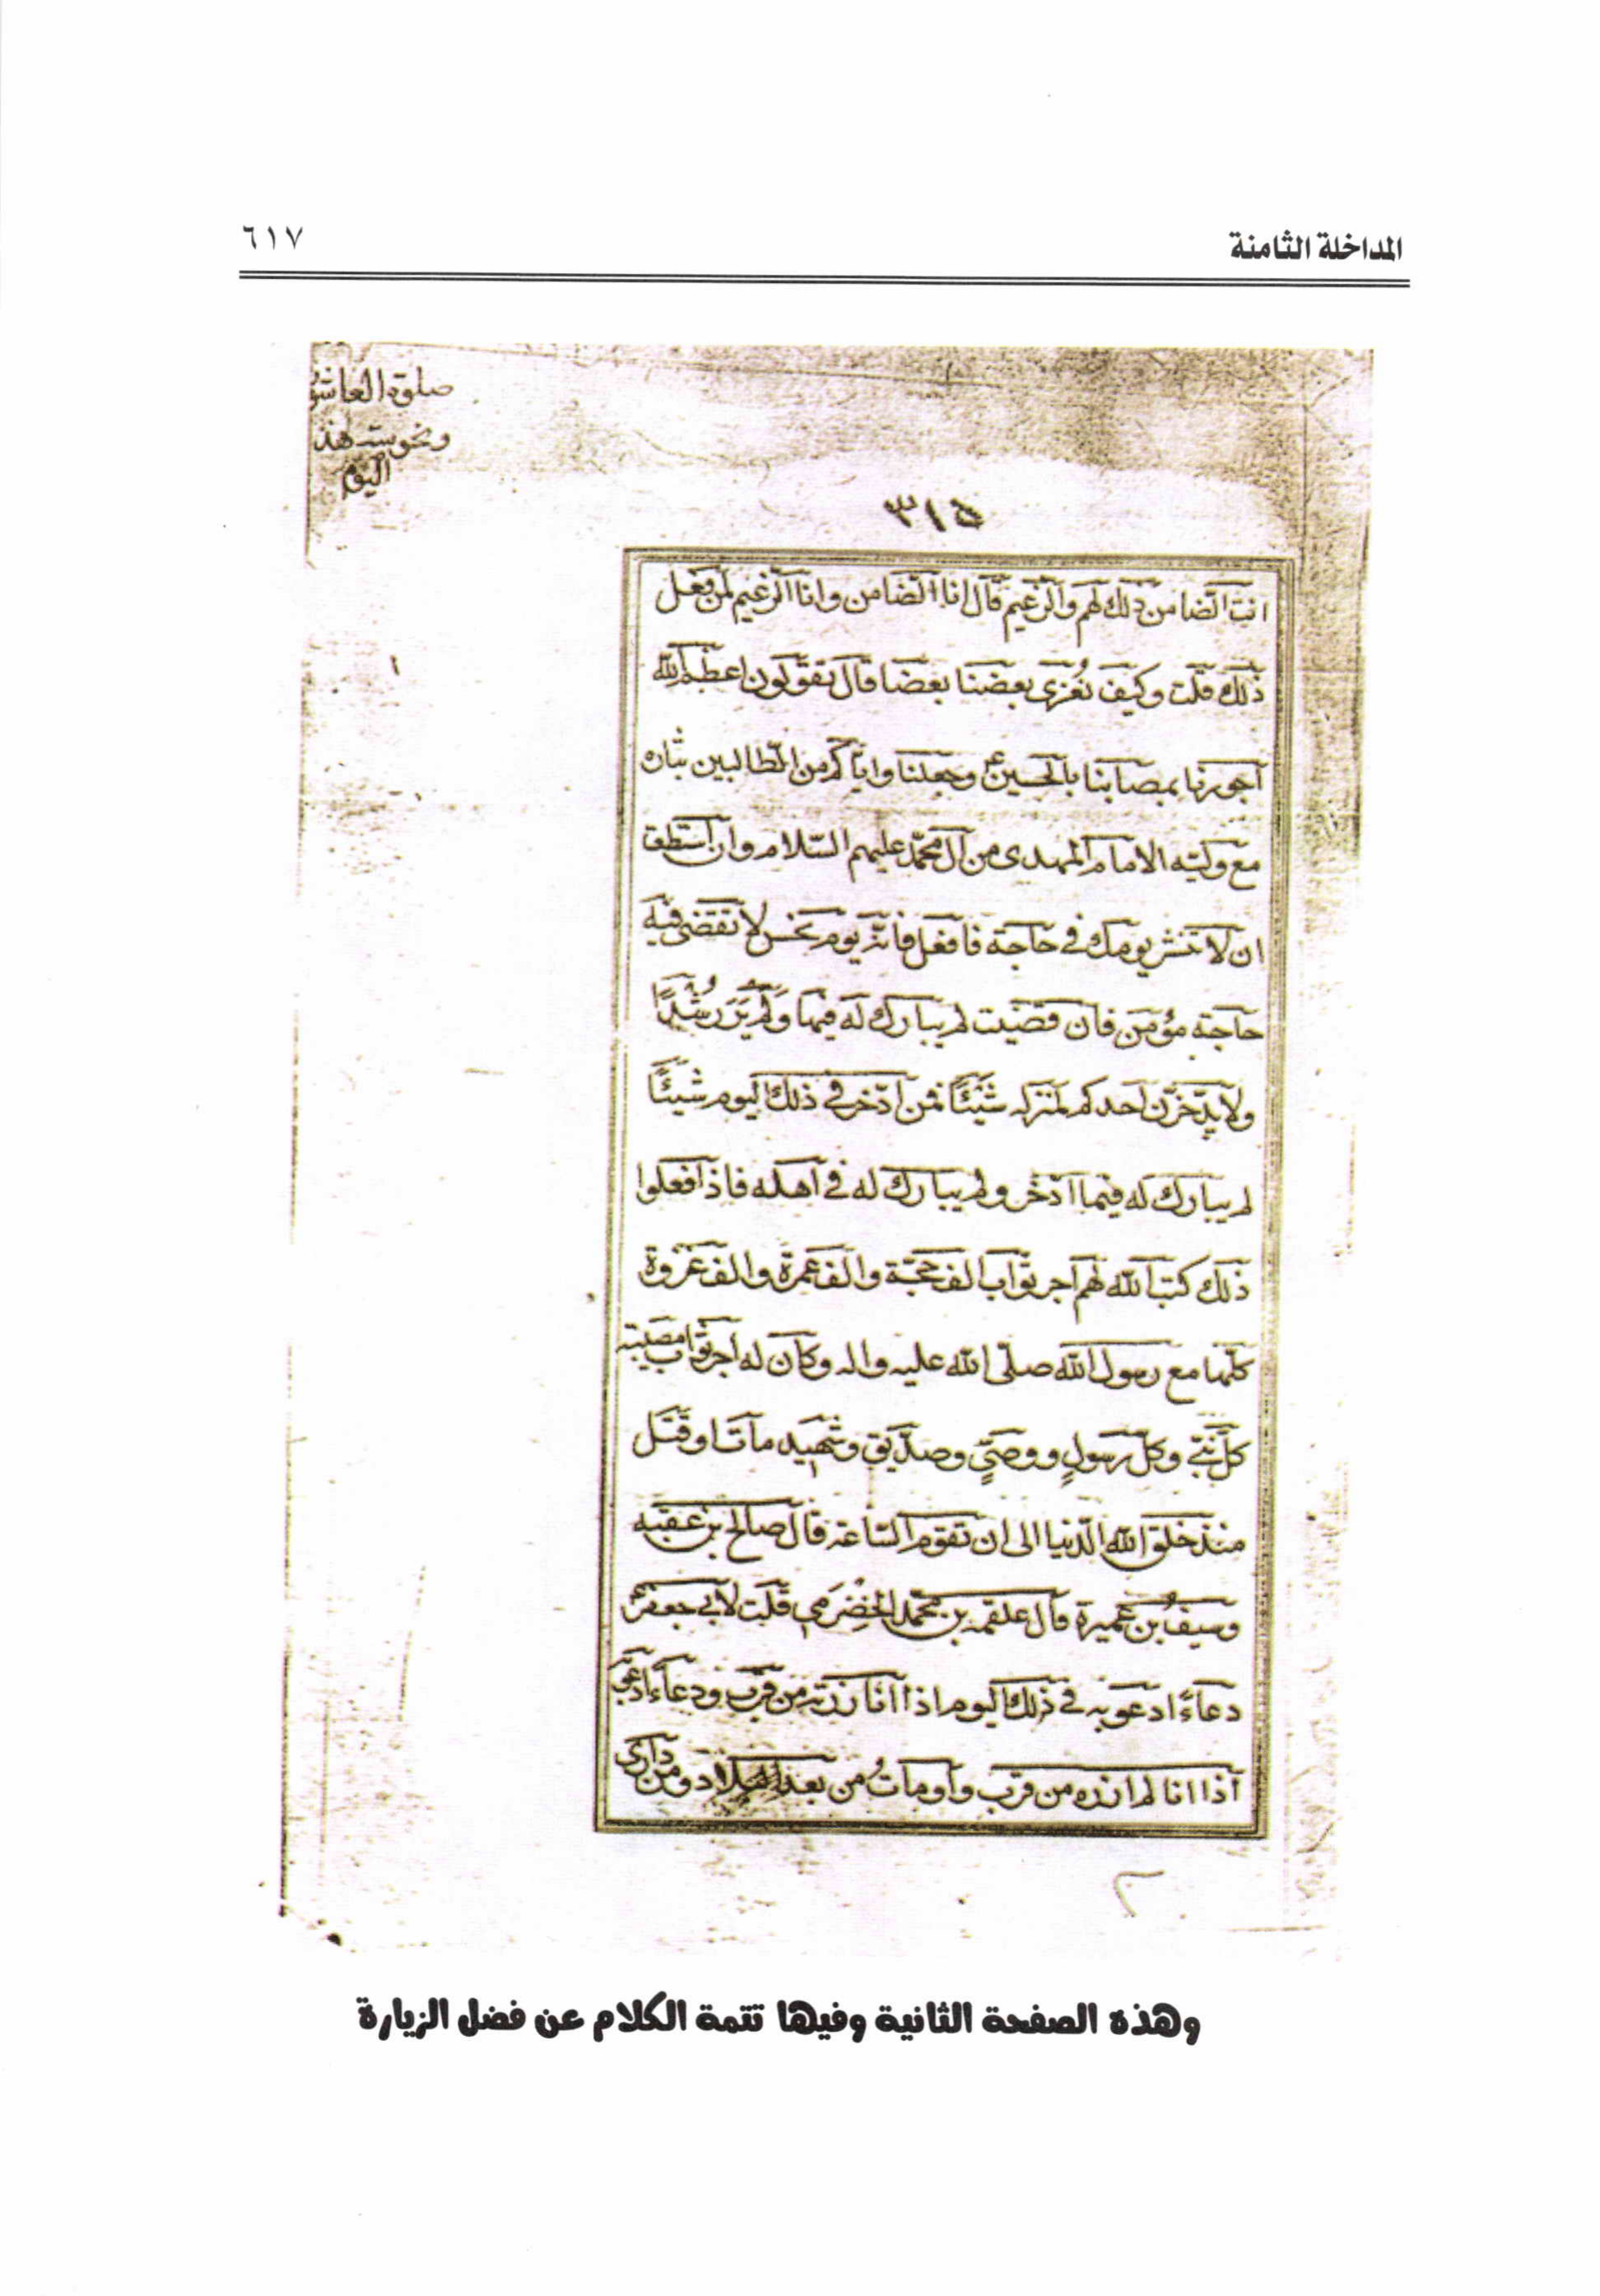 المداخلة الثامنة ٦١٧
صلوة العاشور
ونحوسة هذا
اليوم
٣١٥
انت الضامن ذلك لهم والزعيم قال انا الضامن وانا الزعيم لمن فعل
ذلك قلت وكيف نُعزى بعضنا بعضا قال تقولون اعظم الله
اجورنا بمصابنا بالحسين ع وجعلنا واياكم من الطالبين بثاره
مع وليه الامام المهدى من آل محمد عليهم السلام وان استطق
ان لا تنشر يومك في حاجة فافعل فانه يوم نحس لا تقضى فيه
حاجة مؤمن فان قضيت لم يبارك له فيها وَلَم يَرَ رُشدًا
ولا يدّخرن احدكم لمنزله شيئًا فمن ادّخر في ذلك اليوم شيئًا
لم يبارك له فيما ادّخر ولم يبارك له في اهله فاذا فعلوا
ذلك كتب الله لهم اجر ثواب الف حجة والف عمرة والف غزوة
كلها مع رسول الله صلى الله عليه واله وكان له اجر ثواب مصيبة
كل نبي وكل رسولٍ ووصيٍّ وصدّيق وشهيد مات او قتل
منذ خلق الله الدنيا الى ان تقوم الساعة قال صالح بن عقبه
وسيفُ بن عميرة قال علقمه بن محمد الخضرمي قلت لابي جعفر ع
دعاءً ادعو به في ذلك اليوم اذا انا زرته من قرب ودعاءً ادعو
اذا انا لم ازره من قرب و اومات من بعد البلاد ومن دارى
وهذه الصفحة الثانية وفيها تتمة الكلام عن فضل الزيارة